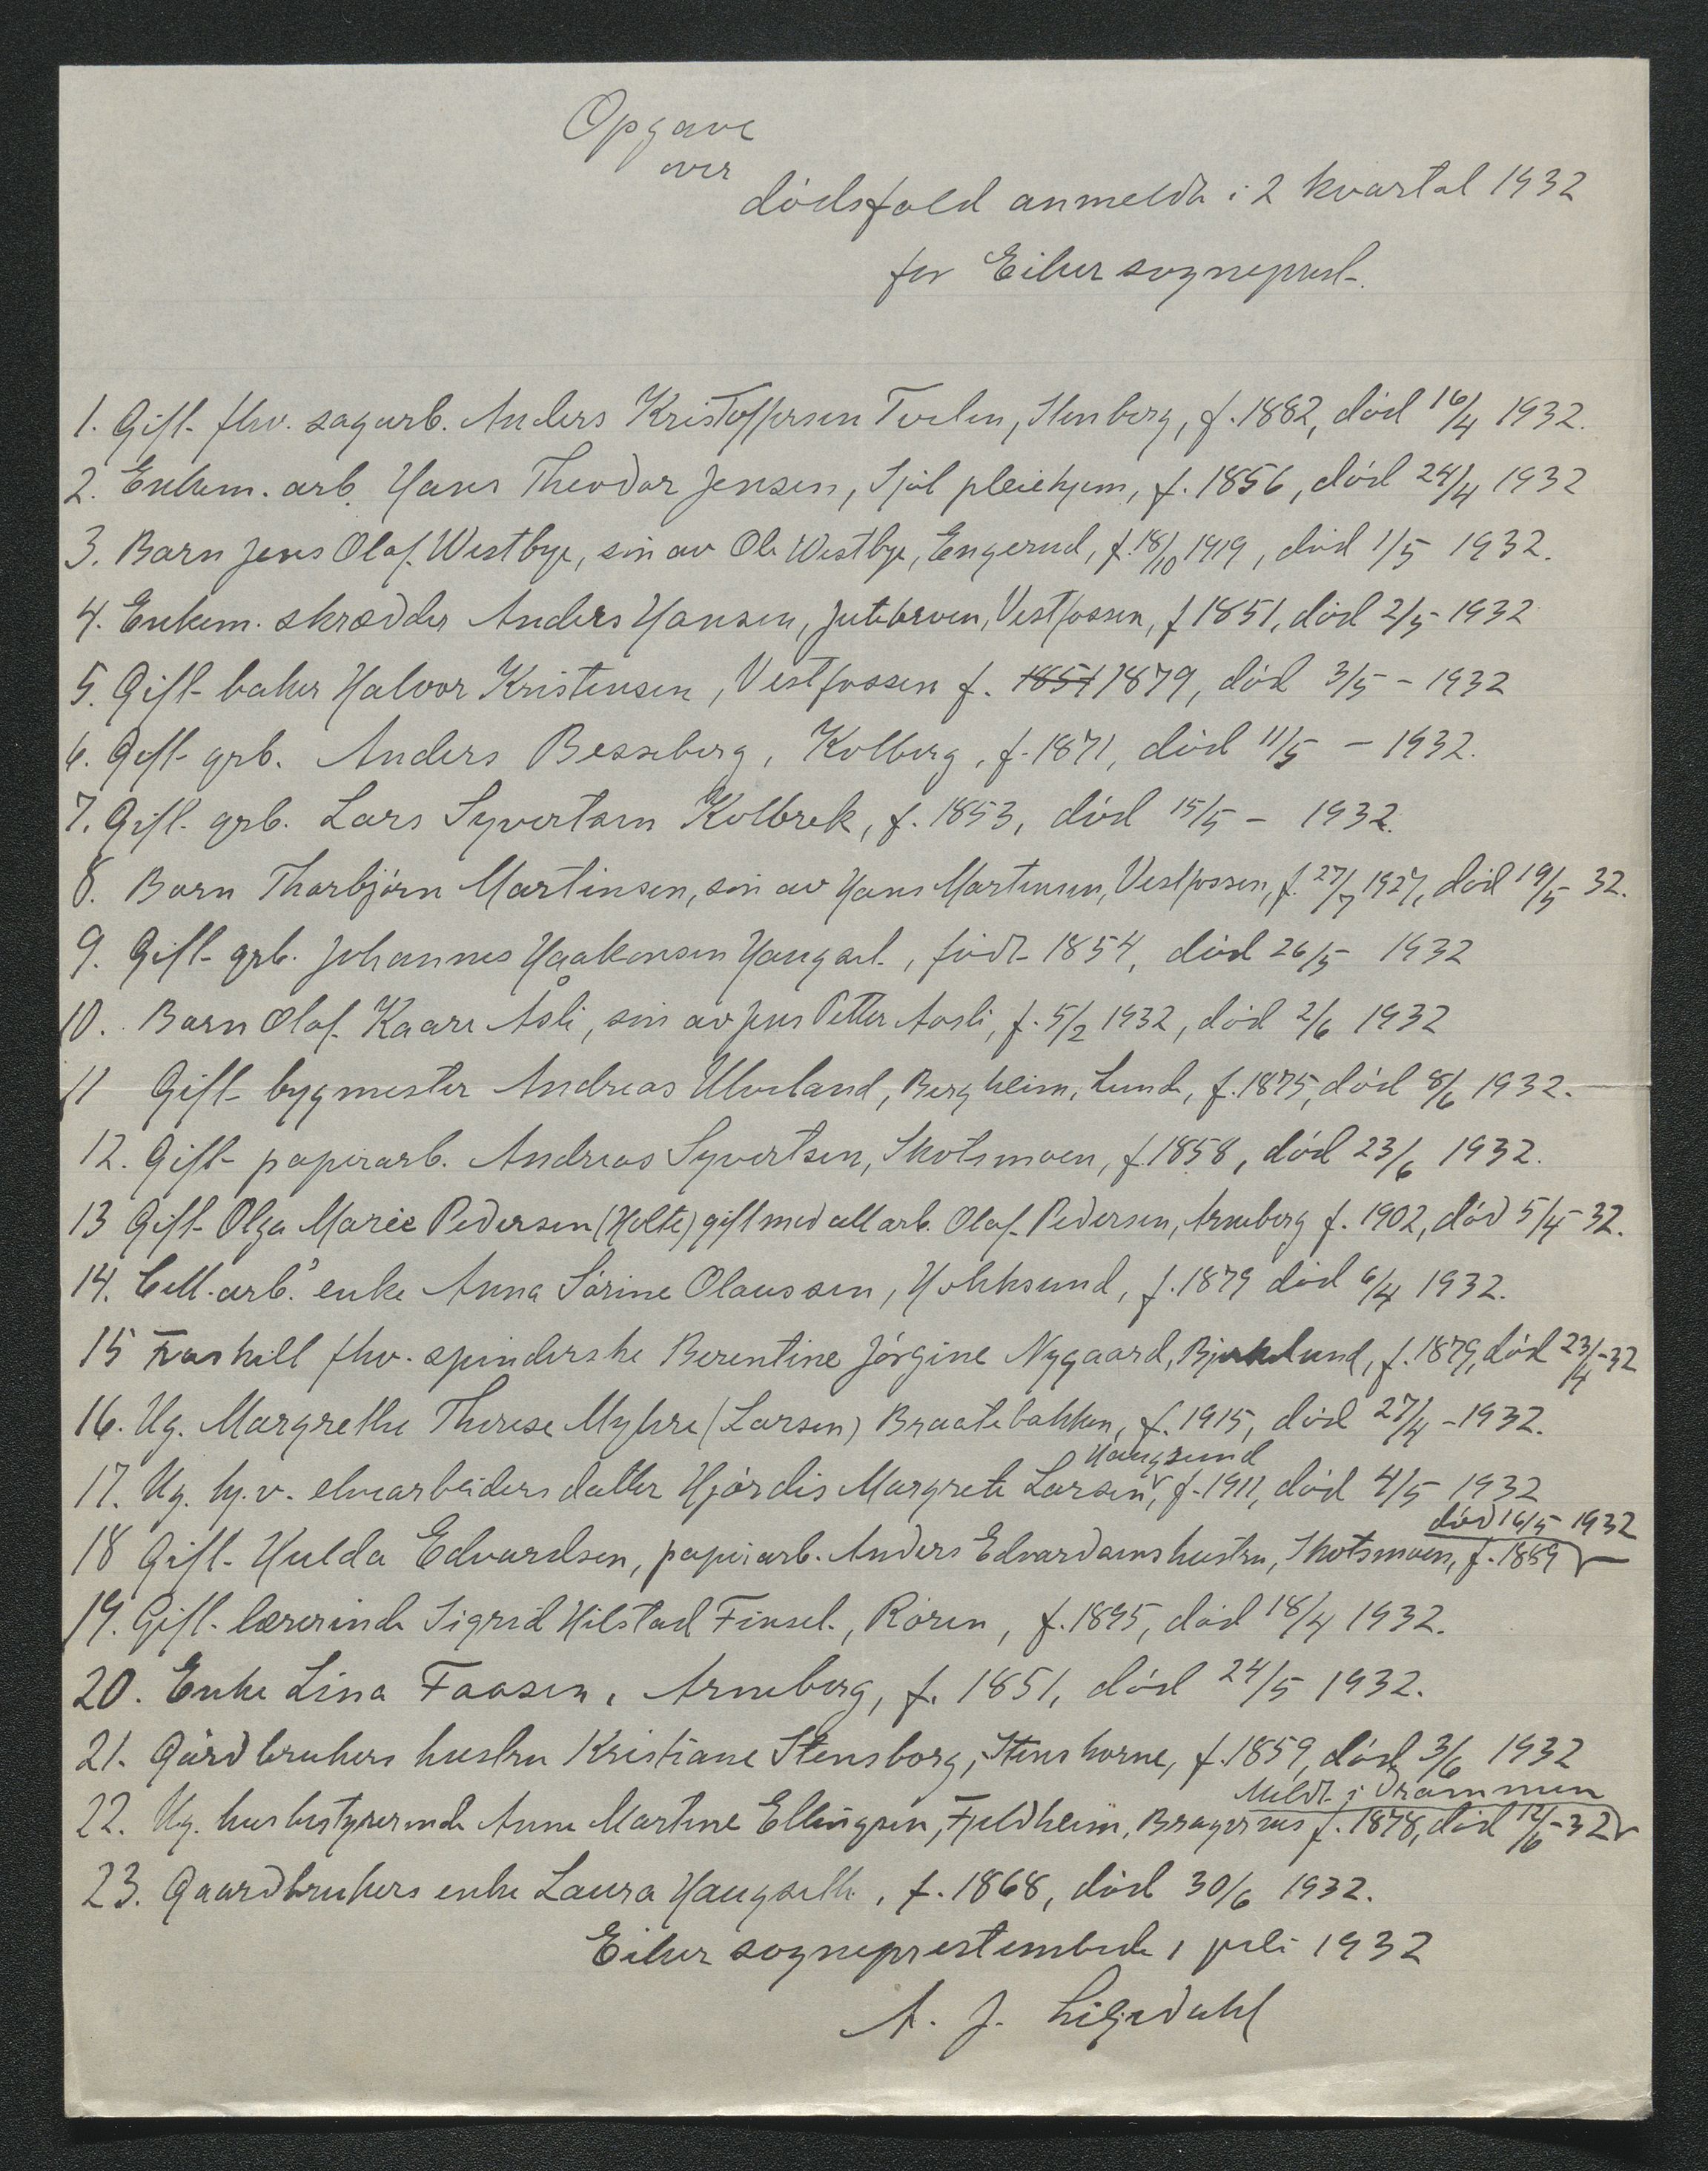 Opgave
over
dødsfald anmeldt i 2 kvartal 1932
for Eiker sogneprest.
1. Gift fhv. sagarb. Anders Kristoffersen Tveten, Stenberg, f. 1882, død 16/4 1932.
2. Enkem. arb. Hans Theodor Jensen, Sjøl pleiehjem, f. 1856, død 24/4 1932
3. Barn Jens Olaf Westbye, søn av Ole Westbye, Engerud, f. 18/10 1919, død 1/5 1932.
4. Enkem. skrædder Anders Hansen, Vestfossen, f 1851, død 2/5 1932
5. Gift baker Halvor Kristensen, Vestfossen f. 1851 1879, død 3/5 - 1932
6. Gift grb. Anders Besseberg, Kolberg, f. 1871, død 11/5 - 1932.
7. Gift. grb. Lars Syvertsen Kolbrek, f. 1853, død 15/5 - 1932.
8. Barn Thorbjørn Martinsen, søn av Hans Martinsen, Vestfossen, f. 27/7 1927, død 19/5 32.
9. Gift grb. Johannes Haakonsen Haugset, født 1854, død 26/5 1932
10. Barn Olaf Kaare Åsli, søn av Jens Petter Aasli, f. 5/2 1932, død 2/6 1932
11 Gift bygmester Andreas Ulveland, Bergheim, Lunde, f. 1875, død 8/6 1932.
12. Gift papirarb. Andreas Syvertsen, Skotsmoen, f. 1858, død 23/6 1932.
13 Gift Olga Marie Pedersen (Holte) gift med cell arb. Olaf Pedersen, Arneberg f. 1902, død 5/4 32.
14. Cell. arb.' enke Anna Sørine Olaussen, Hokksund, f. 1879 død 6/4 1932.
15 Fraskill fhv. spinderske Berentine Jørgine Nygaard, Bjørklund, f. 1879, død 23/4-32
16. Ug. Margrethe Therese Myhre (Larsen) Braatebakken, f. 1915, død 27/4 - 1932.
Haugsund
17. Ug. hj.v. elvearbeiders datter Hjørdis Margrete Larsen, f. 1911, død 4/5 1932
død 16/5 1932
18 Gift. Hulda Edvardsen, papirarb. Anders Edvardsens hustru, Skotsmoen, f. 1859
19. Gift. lærerinde Sigrid Hilstad Finset, Røren, f. 1895, død 18/4 1932.
20. Enke Lina Faasen, Arneberg, f. 1851, død 24/5 1932.
21. Gårdbrukers hustru Kristiane Stensborg, Stenshorne, f. 1859, død 3/6 1932
Meldt i Drammen
22. Ug. husbestyrerinde Anne Martine Ellingsen, Fjeldheim, Bragernes f. 1878, død 12/6-32
23. Gaardbrukers enke Laura Haugseth, f. 1868, død 30/6 1932.
Eiker sogneprestembede 1 juli 1932
A. J. Liljedahl